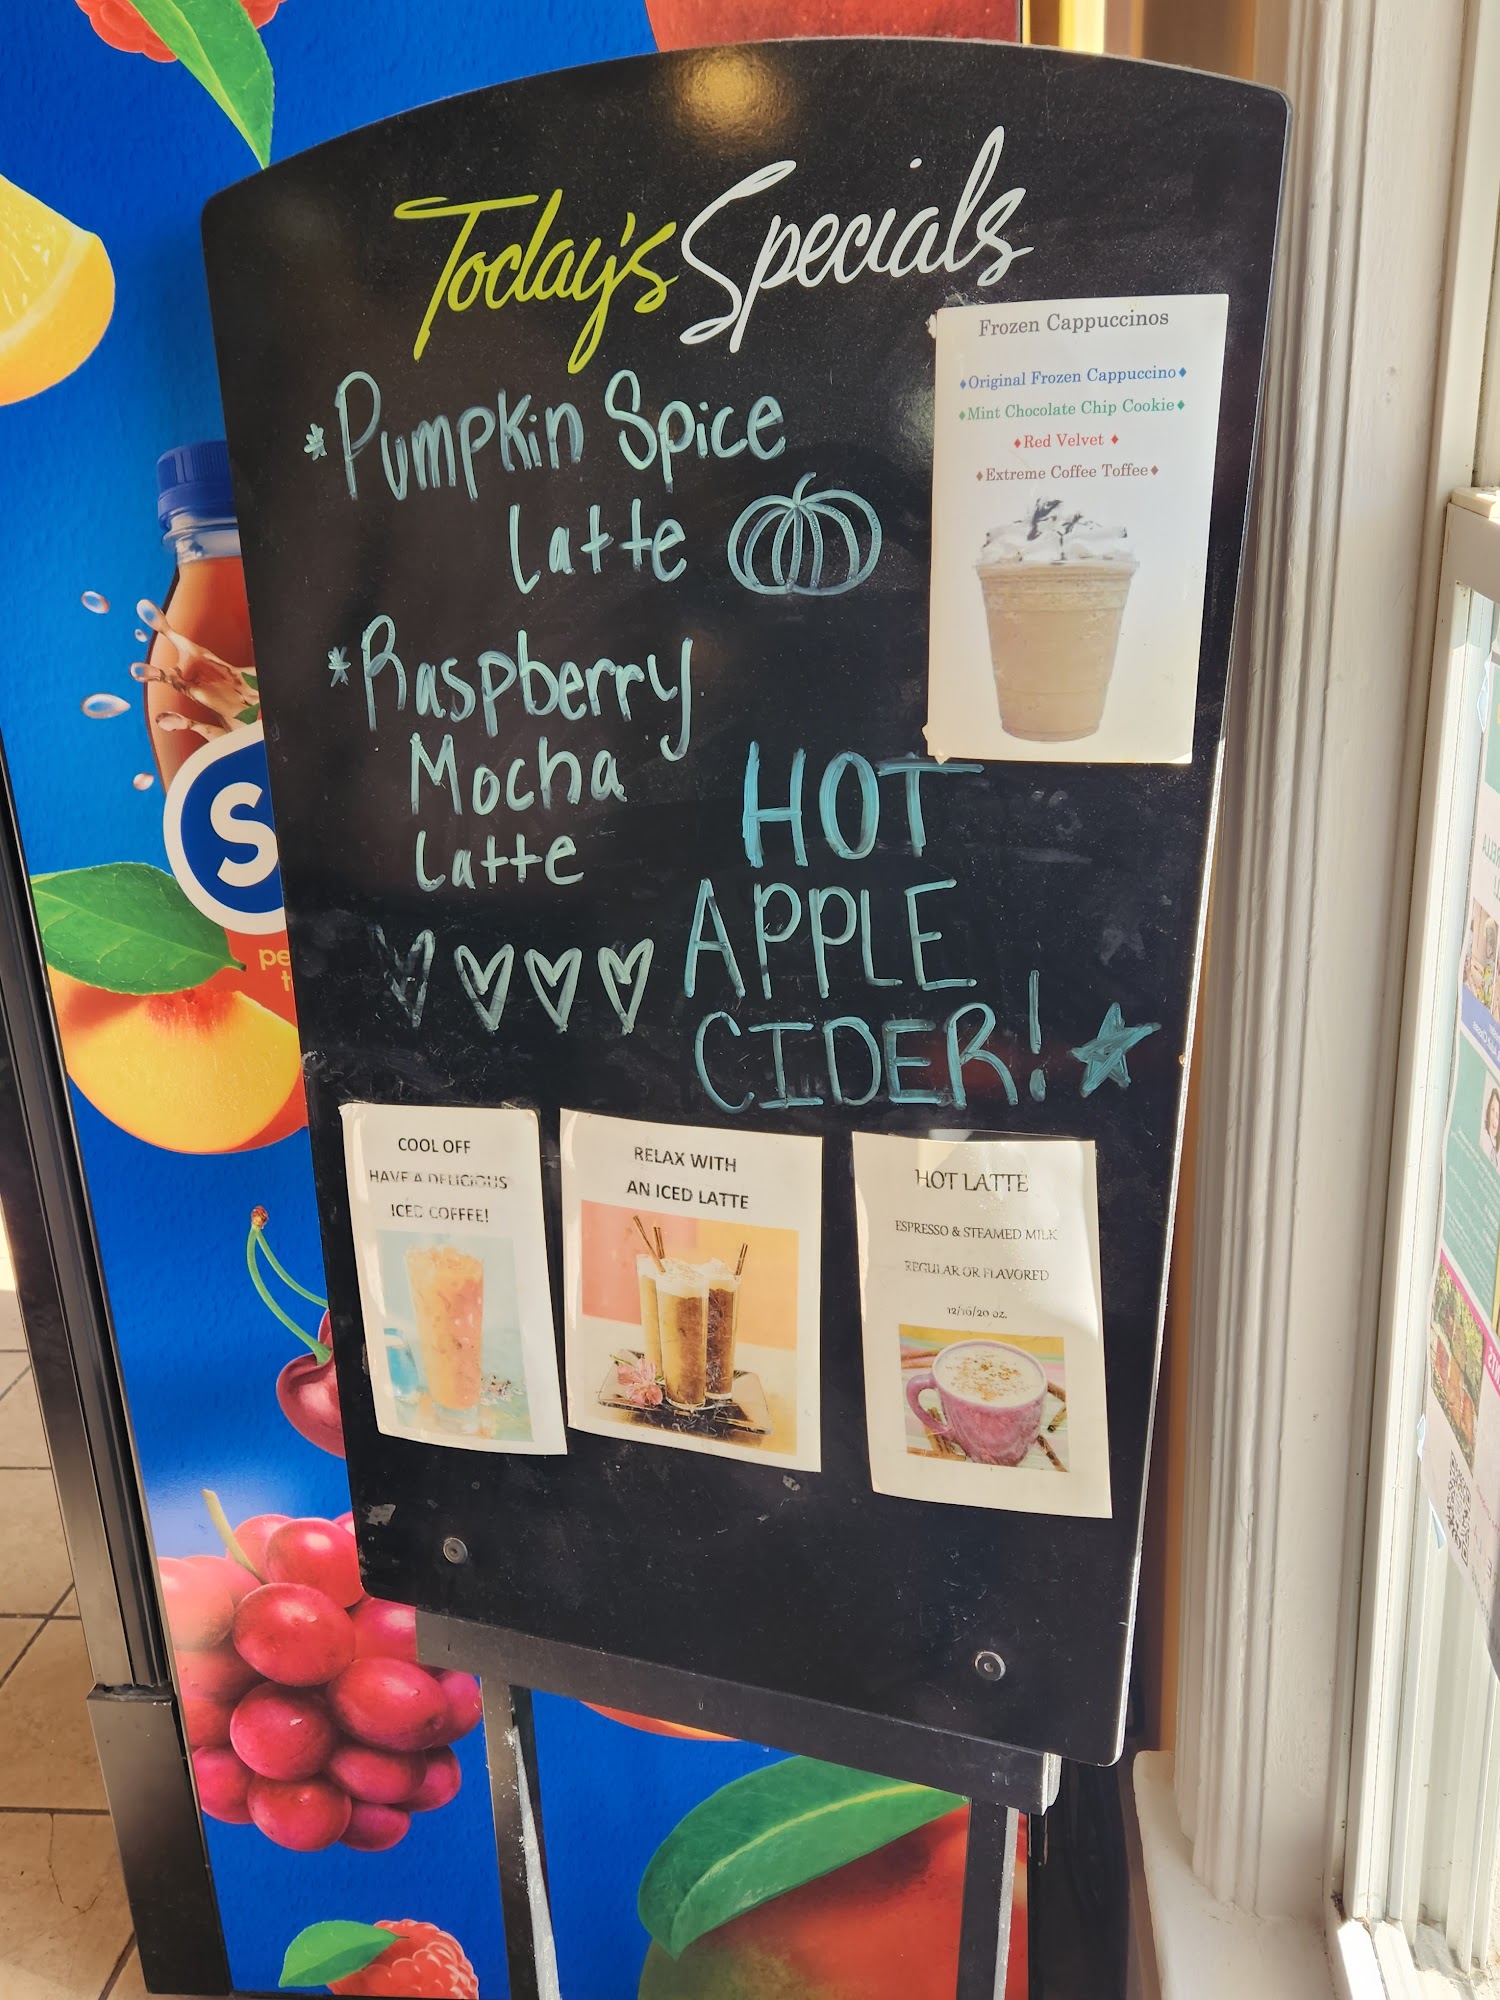 Today's Specials
*Pumpkin Spice
Latte
*Raspberry
Mocha
Latte
HOT
APPLE
CIDER!
Frozen Cappuccinos
♦Original Frozen Cappuccino♦
♦Mint Chocolate Chip Cookie♦
♦Red Velvet ♦
♦Extreme Coffee Toffee♦
COOL OFF
HAVE A DELICIOUS
ICED COFFEE!
RELAX WITH
AN ICED LATTE
HOT LATTE
ESPRESSO & STEAMED MILK
REGULAR OR FLAVORED
12/16/20 oz.
S
pe
t